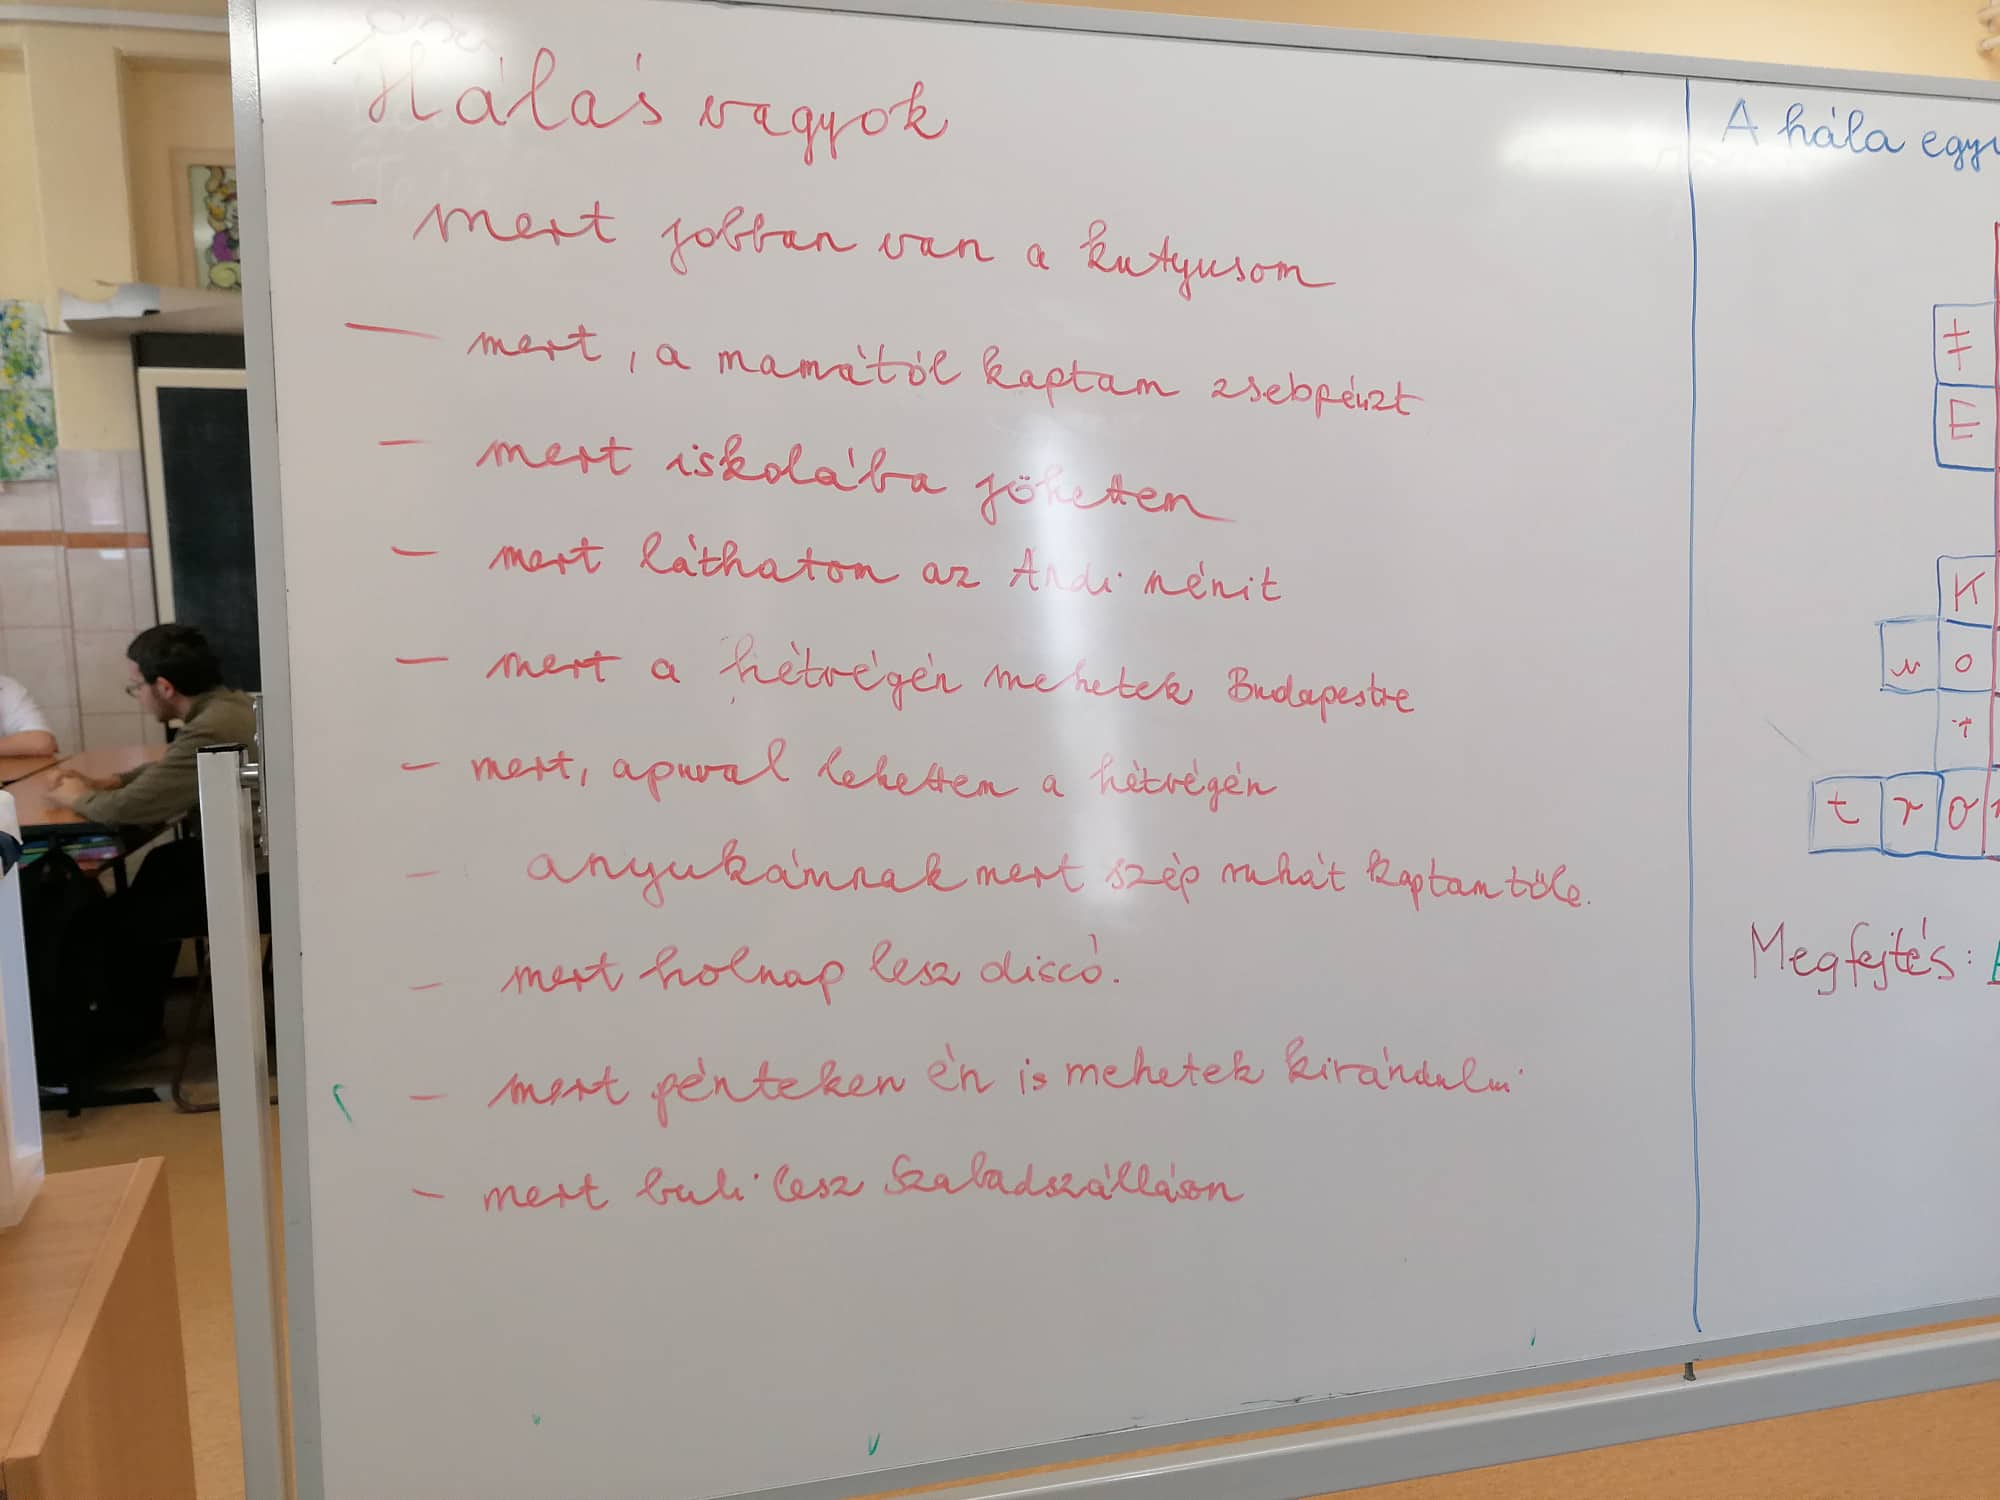 Hálás vagyok
- mert jobban van a kutyusom
- mert, a mamától kaptam zsebpénzt
- mert iskolába jöhettem
- mert láthatom az Andi nénit
- mert a hétvégén mehetek Budapestre
- mert, apuval lehettem a hétvégén
- anyukámnak mert szép ruhát kaptam tőle.
- mert holnap lesz discó.
- mert pénteken én is mehetek kirándulni
- mert buli lesz Szabadszálláson
A hála egy
E
K
o
t r o
Megfejtés: